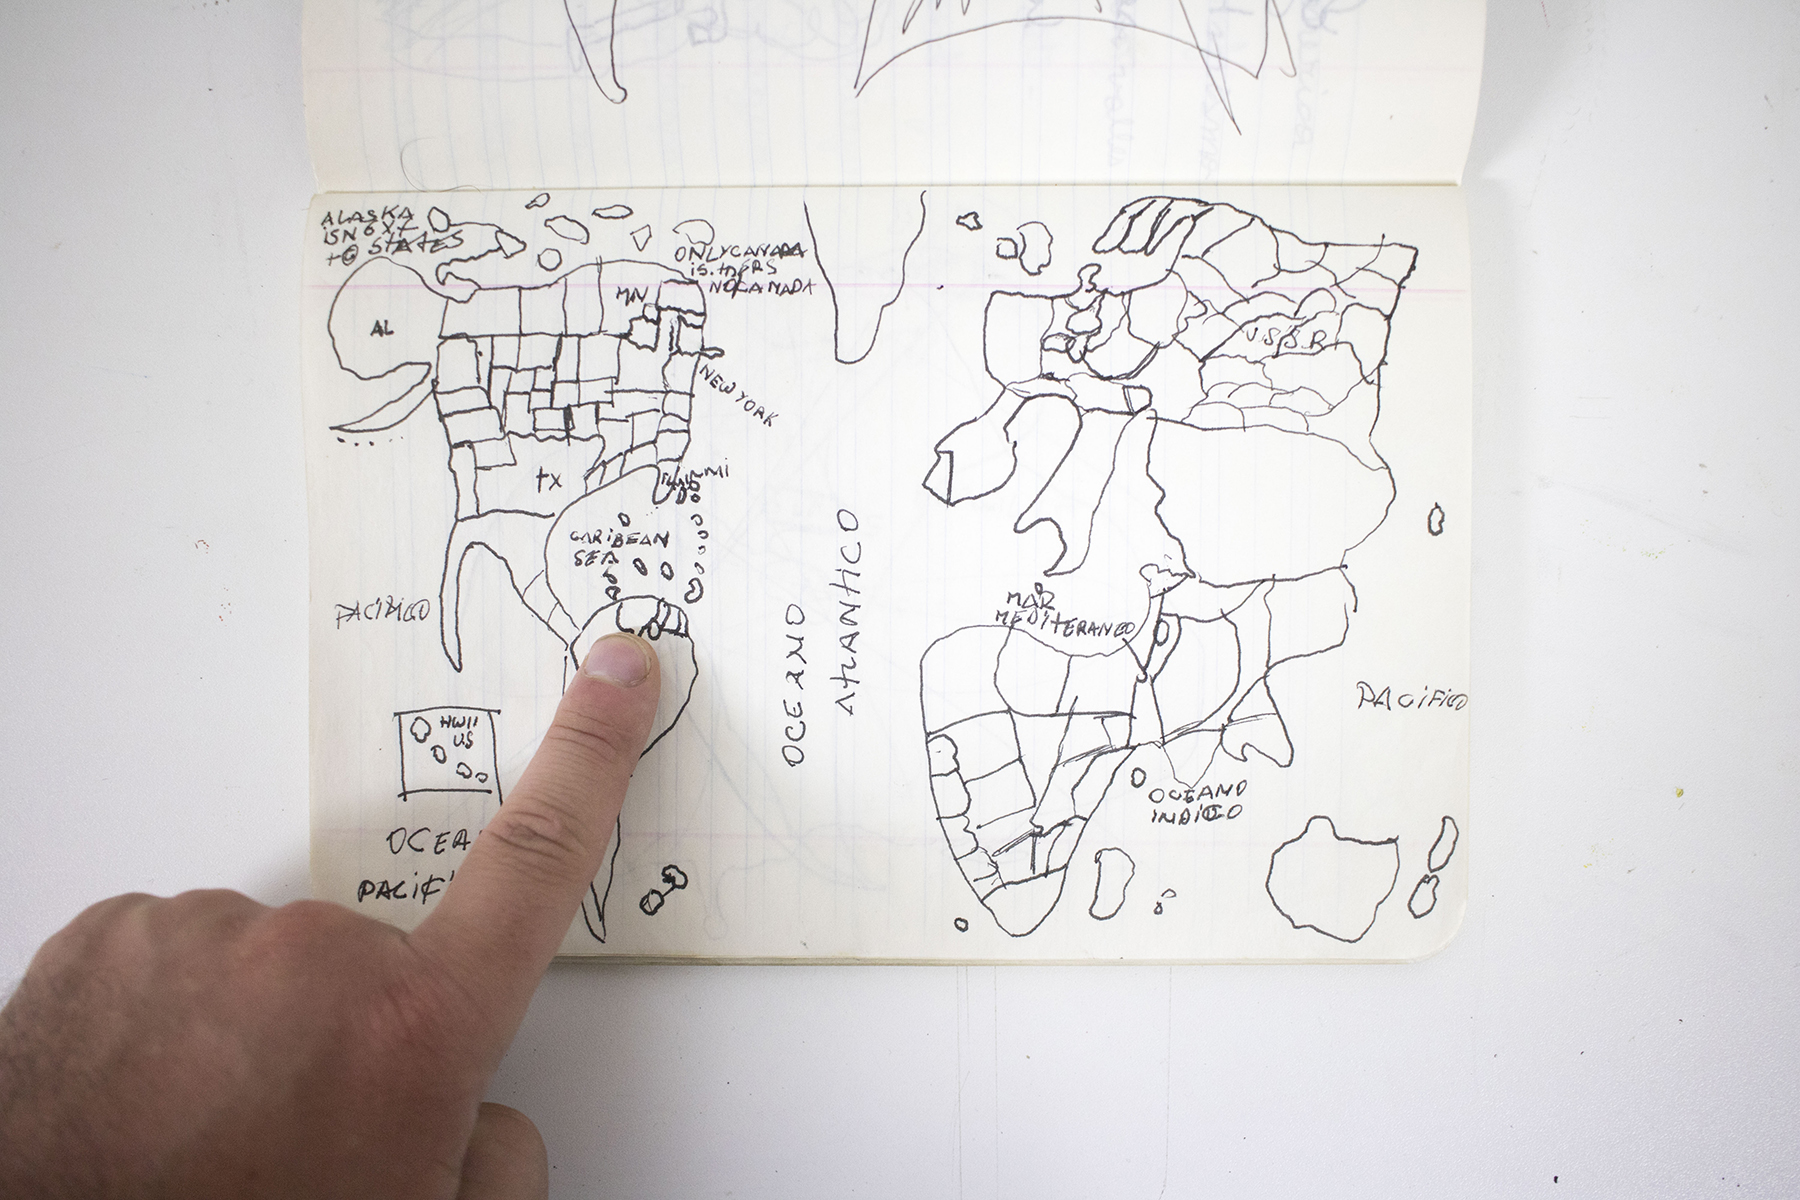 ALASKA
iSN
to STATES
ONLY CANADA
is.
NO CANADA
AL
MN
NEW YORK
tx
CARiBEAN
SEA
PACIFICO
HWII
US
OCEA
PACiFi
OCEANO
AtLANtiCO
U.S.S.R
MAR
MEDitERANEO
PACiFiCO
OCEANO
iNDiCO